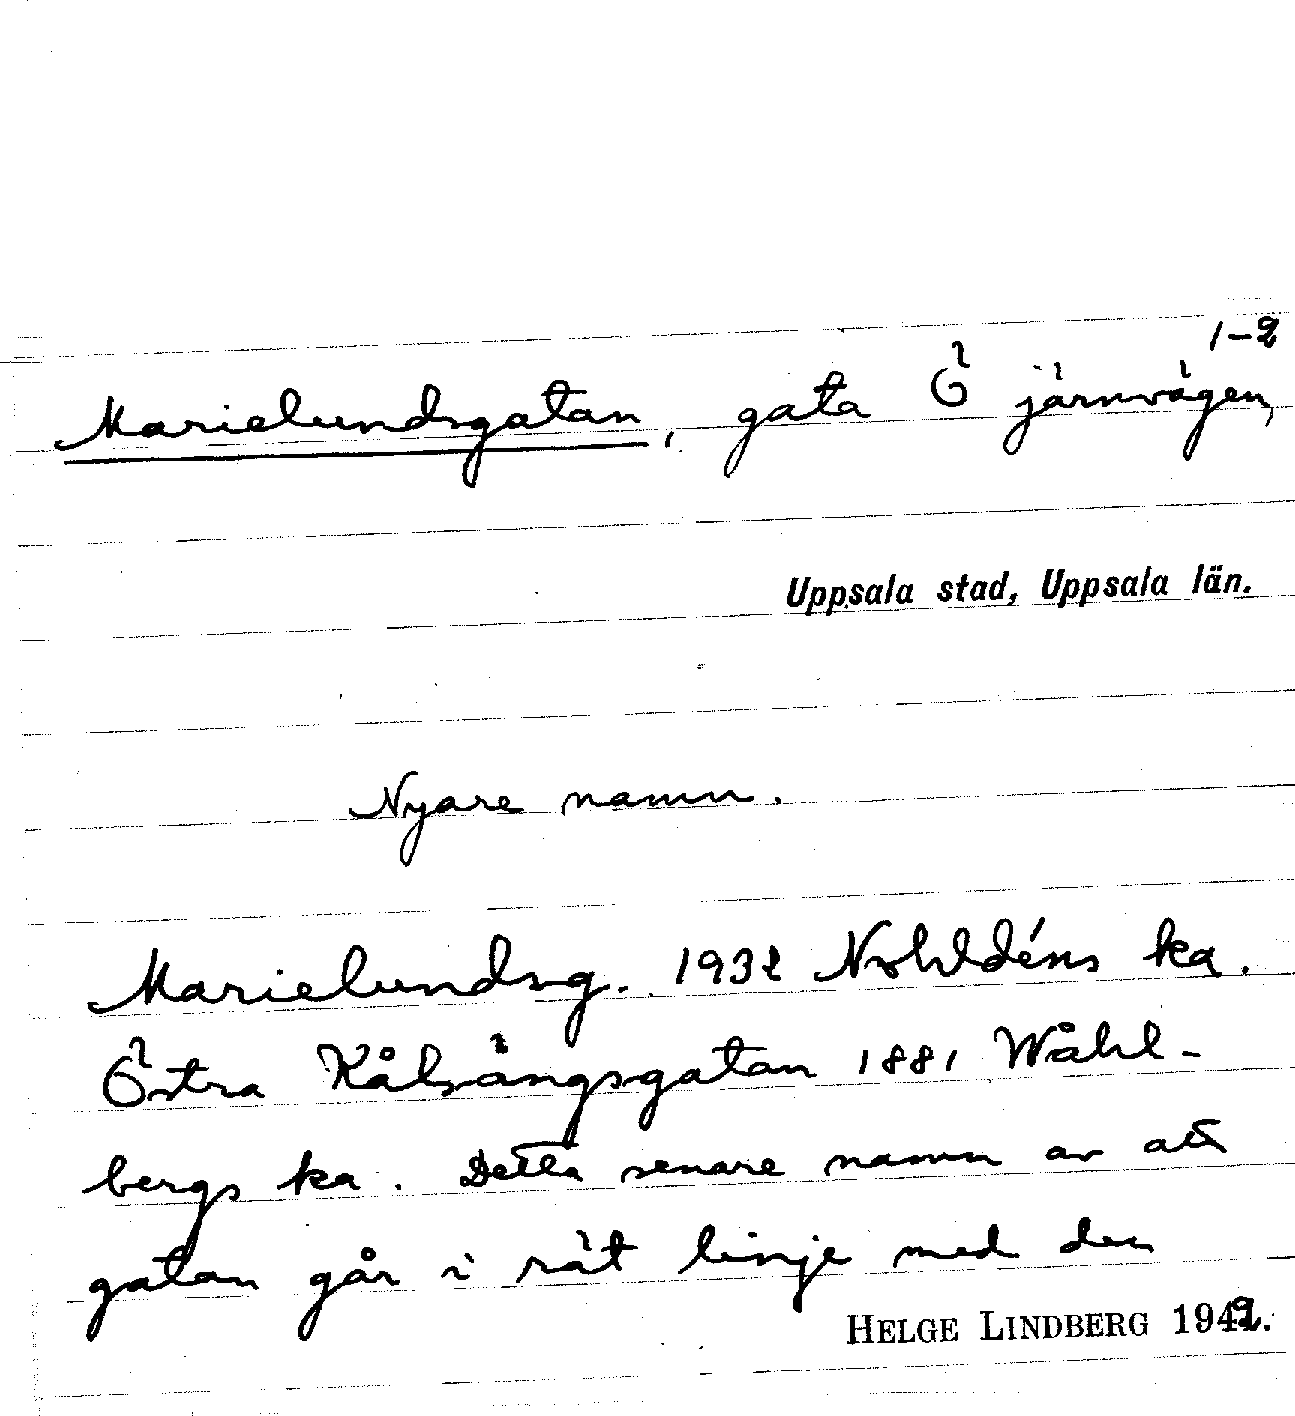 1-2
Marielundsgatan, gata Ö järnvägen,
Uppsala stad, Uppsala län.
Nyare namn.
Marielundsg. 1932 Nohldéns ka.
Östra Kålsängsgatan 1881 Wåhl-
bergs ka. Detta senare namn av att
gatan går i rät linje med den
HELGE LINDBERG 1942.